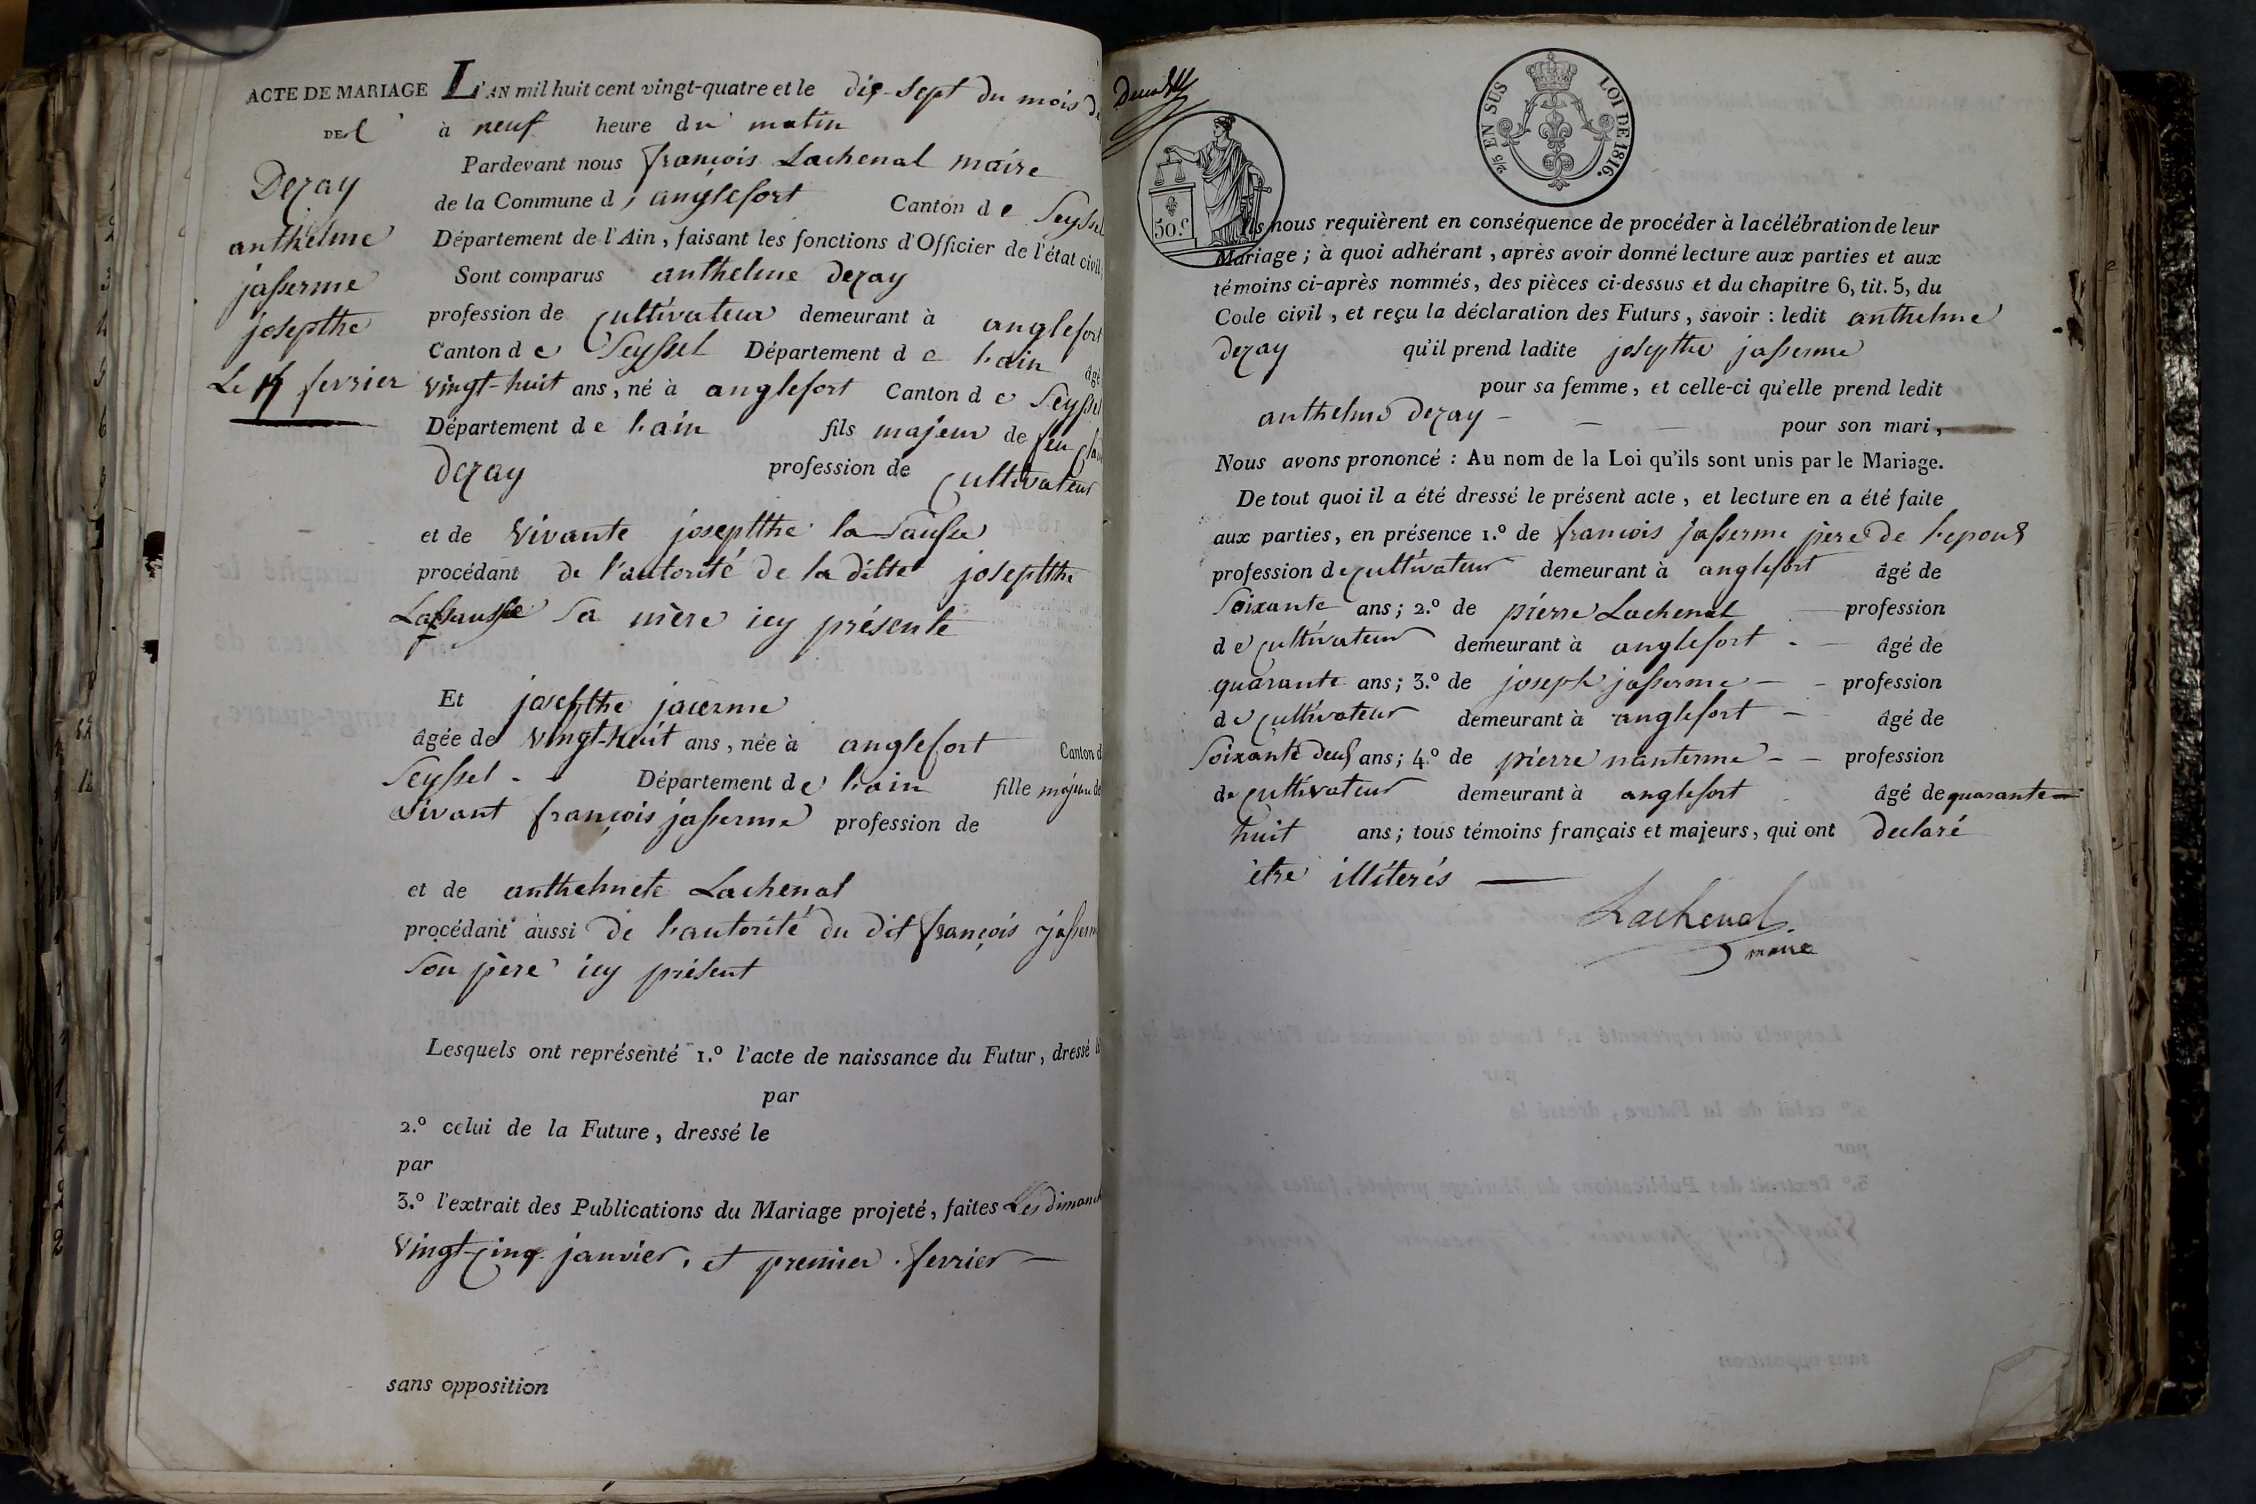 ACTE DE MARIAGE
DE
Dezay
anthelme
jasserme
josepthe
Le 17 fevrier
L'AN mil huit cent vingt-quatre et le dix-sept du mois de
à neuf heure du matin
Pardevant nous françois Lachenal maire
de la Commune d'anglefort Canton de Seyssel
Département de l'Ain, faisant les fonctions d'Officier de l'état civil,
Sont comparus anthelme dezay
profession de Cultivateur demeurant à anglefort
Canton de Seyssel Département de l'ain âgé
vingt-huit ans, né à anglefort Canton de Seyssel
Département de l'ain fils majeur de feu
dezay profession de Cultivateur
et de vivante josepthe la Sausse
procédant de l'autorité de la ditte josepthe
Lasausse Sa mère icy présente
Et josepthe jacerme
âgée de vingt-huit ans, née à anglefort Canton d
Seyssel - Département de l'ain fille majeure de
vivant françois jasserme profession de
et de anthelmete Lachenal
procédant aussi de l'autorité du dit françois jasserme
Son père icy présent
Lesquels ont représenté 1.º l'acte de naissance du Futur, dressé le
par
2.º celui de la Future, dressé le
par
3.º l'extrait des Publications du Mariage projeté, faites Les dimanch
vingt-Cinq janvier, et premier fevrier -
sans opposition
2/5 EN SUS LOI DE 1816.
50.c
Ils nous requièrent en conséquence de procéder à la célébration de leur
Mariage ; à quoi adhérant, après avoir donné lecture aux parties et aux
témoins ci-après nommés, des pièces ci-dessus et du chapitre 6, tit. 5, du
Code civil, et reçu la déclaration des Futurs, savoir : ledit anthelme
dezay qu'il prend ladite josepthe jasserme
pour sa femme, et celle-ci qu'elle prend ledit
anthelme dezay - - - pour son mari,
Nous avons prononcé : Au nom de la Loi qu'ils sont unis par le Mariage.
De tout quoi il a été dressé le présent acte, et lecture en a été faite
aux parties, en présence 1.º de francois jasserme père de l'epous
profession de Cultivateur demeurant à anglefort âgé de
Soixante ans; 2.º de pierre Lachenal profession
de Cultivateur demeurant à anglefort - âgé de
quarante ans; 3.º de joseph jasserme - - profession
de Cultivateur demeurant à anglefort - âgé de
Soixante deux ans; 4.º de pierre nanterme - - profession
de Cultivateur demeurant à anglefort âgé de quarante-
huit ans; tous témoins français et majeurs, qui ont declaré
être illiterés -
Lachenal
maire